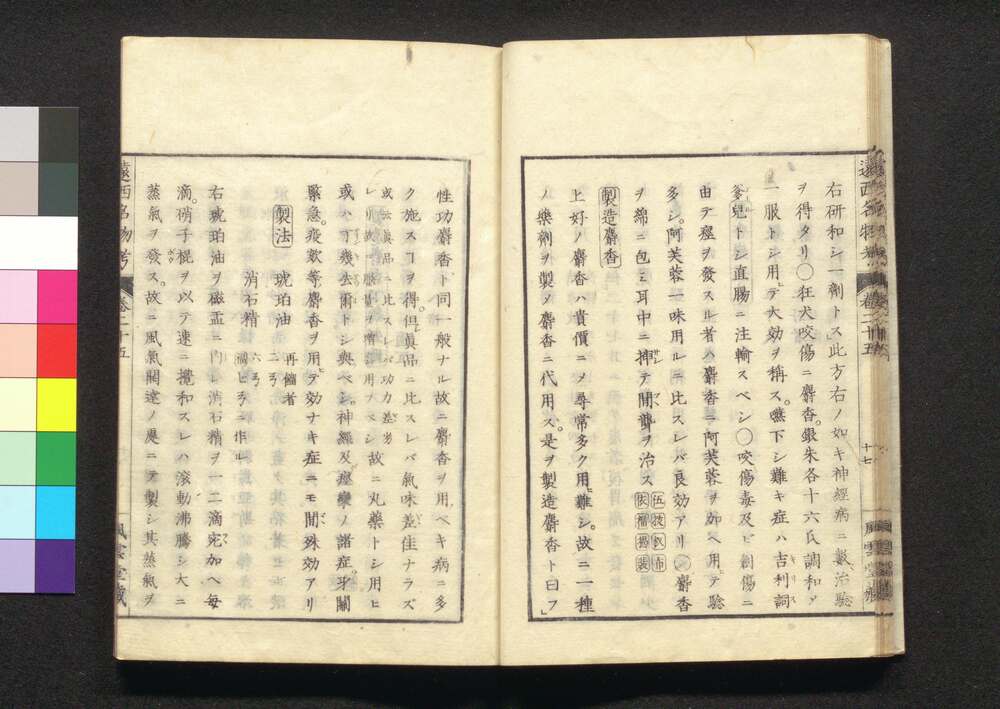 右研和シ一劑トス」此方右ノ如キ神經病ニ數治驗
ヲ得タリ〇狂犬咬傷ニ麝香。銀朱各十六氏調和シ
一服トシ用ヒテ大効ヲ稱ス。嚥下シ難キ症ハ吉利詞
兒トシ直腸ニ注輸スベシ〇咬傷毒及ビ創傷ニ
由テ痙ヲ發スル者ハ麝香ニ阿芙蓉ヲ加ヘ用ヒテ驗
多シ。阿芙蓉一味用ルニ比スレバ良効アリ〇麝香
ヲ綿ニ包ミ耳中ニ挿テ聾ヲ治ス
製造麝香
上好ノ麝香ハ貴價ニメ尋常多ク用ヒ難シ。故ニ一種
ノ藥劑ヲ製メ麝香ニ代用ス。是ヲ製造麝香ト曰フ」
遠西名物考 卷二十五 十七 風雲堂藏
性功麝香ト同一般ナル故ニ麝香ヲ用ユベキ病ニ多
ク施スヿヲ得。但眞品ニ比スレバ氣味差佳ナラズ
或云眞品ニ比スレバ功力差劣
レリ故ニ服量ヲ増シ用フベシ故ニ丸藥トシ用ヒ
或ハ幾去爾トシ與ベシ。神經及痙攣ノ諸症牙關
緊急。疫歎等麝香ヲ用ヒテ効ナキ症ニモ間殊効アリ
製法 琥珀油 再餾者 二
消石精 六
右琥珀油ヲ磁盂ニ内レ消石精ヲ一二滴宛加ヘ毎
滴。硝子棍ヲ以テ速ニ攪和スレハ滾動沸騰シ大ニ
蒸氣ヲ發ス。故ニ風氣開達ノ處ニテ製シ其蒸氣ヲ
遠西名物考 卷二十五 風雲堂藏